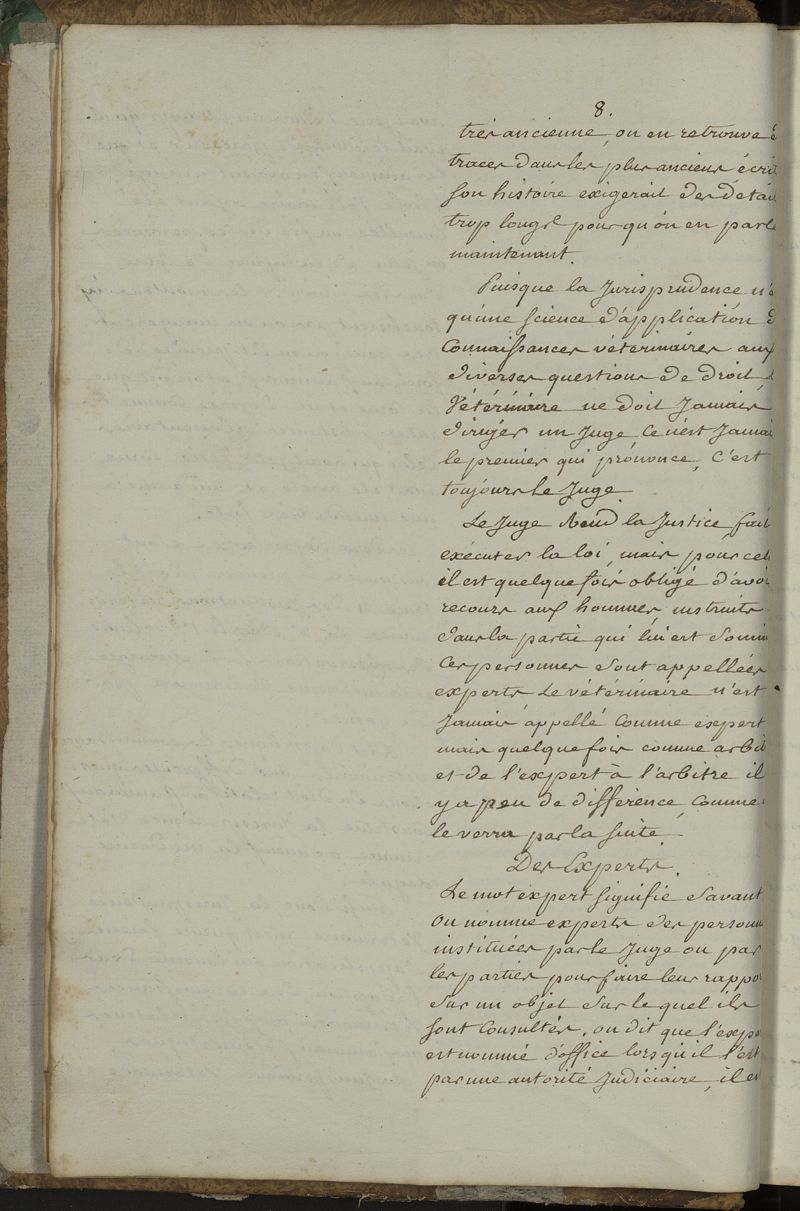 8.
trés ancienne, on en retrouve
traces dans les plus anciens écrit
son histoire exigerait des détai
trop longs pour qu'on en parle
maintenant.
Puisque la Jurisprudence n'e
qu'une science d'application d
Connaissances véterinaires aux
diverses questions de droit, l
Vétérinaire ne doit Jamais
diriger un Juge Ce n'est Jamai
le premier qui prononce, C'est
toujours le Juge.
Le Juge Rend la Justice fait
exécuter la loi, mais pour cel
il est quelque fois obligé d'avoi
recours aux hommes instruits
dans la partie qui lui est soumi
Ces personnes sont appellées
experts Le vétérinaire n'est
Jamais appellé Comme expert
mais quelque fois comme arbit
et de l'expert à l'arbitre il
y a peu de différence, Comme
le verra par la suite.
Des Experts.
Le mot expert signifie Savant
On nomme experts des personn
instituées par le Juge ou par
les parties pour faire leur rappo
sur un objet sur le quel ils
sont Consultés, on dit que l'expe
est nommé d'office lors qu'il l'est
par une autorité Judiciaire, il es